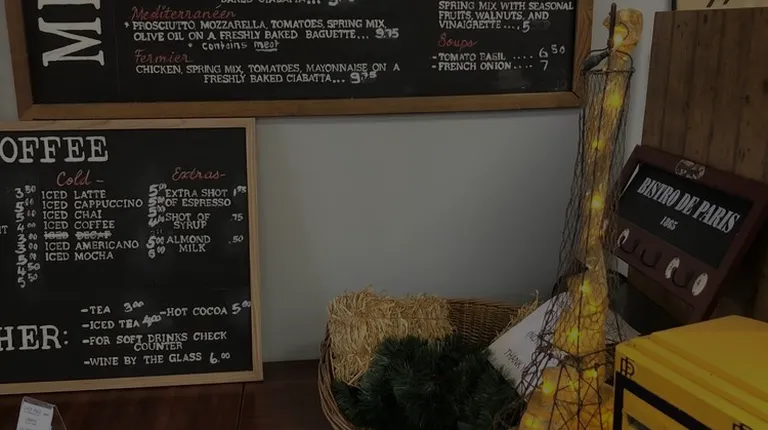 Mediterranéen
* PROSCIUTTO, MOZZARELLA, TOMATOES, SPRING MIX,
OLIVE OIL ON A FRESHLY BAKED BAGUETTE... 9.75
* contains meat
Fermier
CHICKEN, SPRING MIX, TOMATOES, MAYONNAISE ON A
FRESHLY BAKED CIABATTA...
SPRING MIX WITH SEASONAL
FRUITS, WALNUTS, AND
VINAIGRETTE.... 5
Soups
- TOMATO BASIL .... 6.50
- FRENCH ONION.... 7
OFFEE
Cold -
ICED LATTE
ICED CAPPUCCINO
ICED CHAI
ICED COFFEE
ICED DECAF
ICED AMERICANO
ICED MOCHA
Extras-
EXTRA SHOT
OF ESPRESSO
SHOT OF .75
SYRUP
ALMOND .50
MILK
HER:
-TEA 3.00 -HOT COCOA 5.00
-ICED TEA
-FOR SOFT DRINKS CHECK
COUNTER
-WINE BY THE GLASS 6.00
BISTRO DE PARIS
1865
THANK